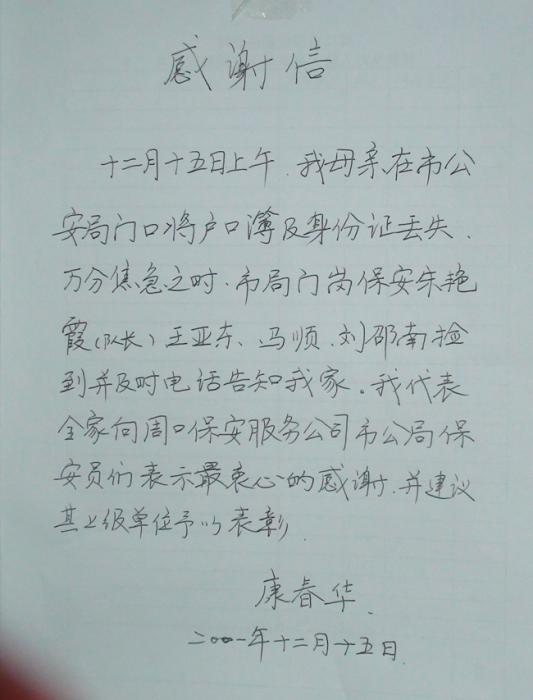 感谢信
十二月十五日上午.我母亲在市公
安局门口将户口簿及身份证丢失.
万分焦急之时.市局门岗保安朱艳
霞(队长)王亚东、马顺.刘邵南捡
到并及时电话告知我家.我代表
全家向周口保安服务公司市公局保
安员们表示最衷心的感谢.并建议
其上级单位予以表彰.
康春华.
二00一年十二月十五日.